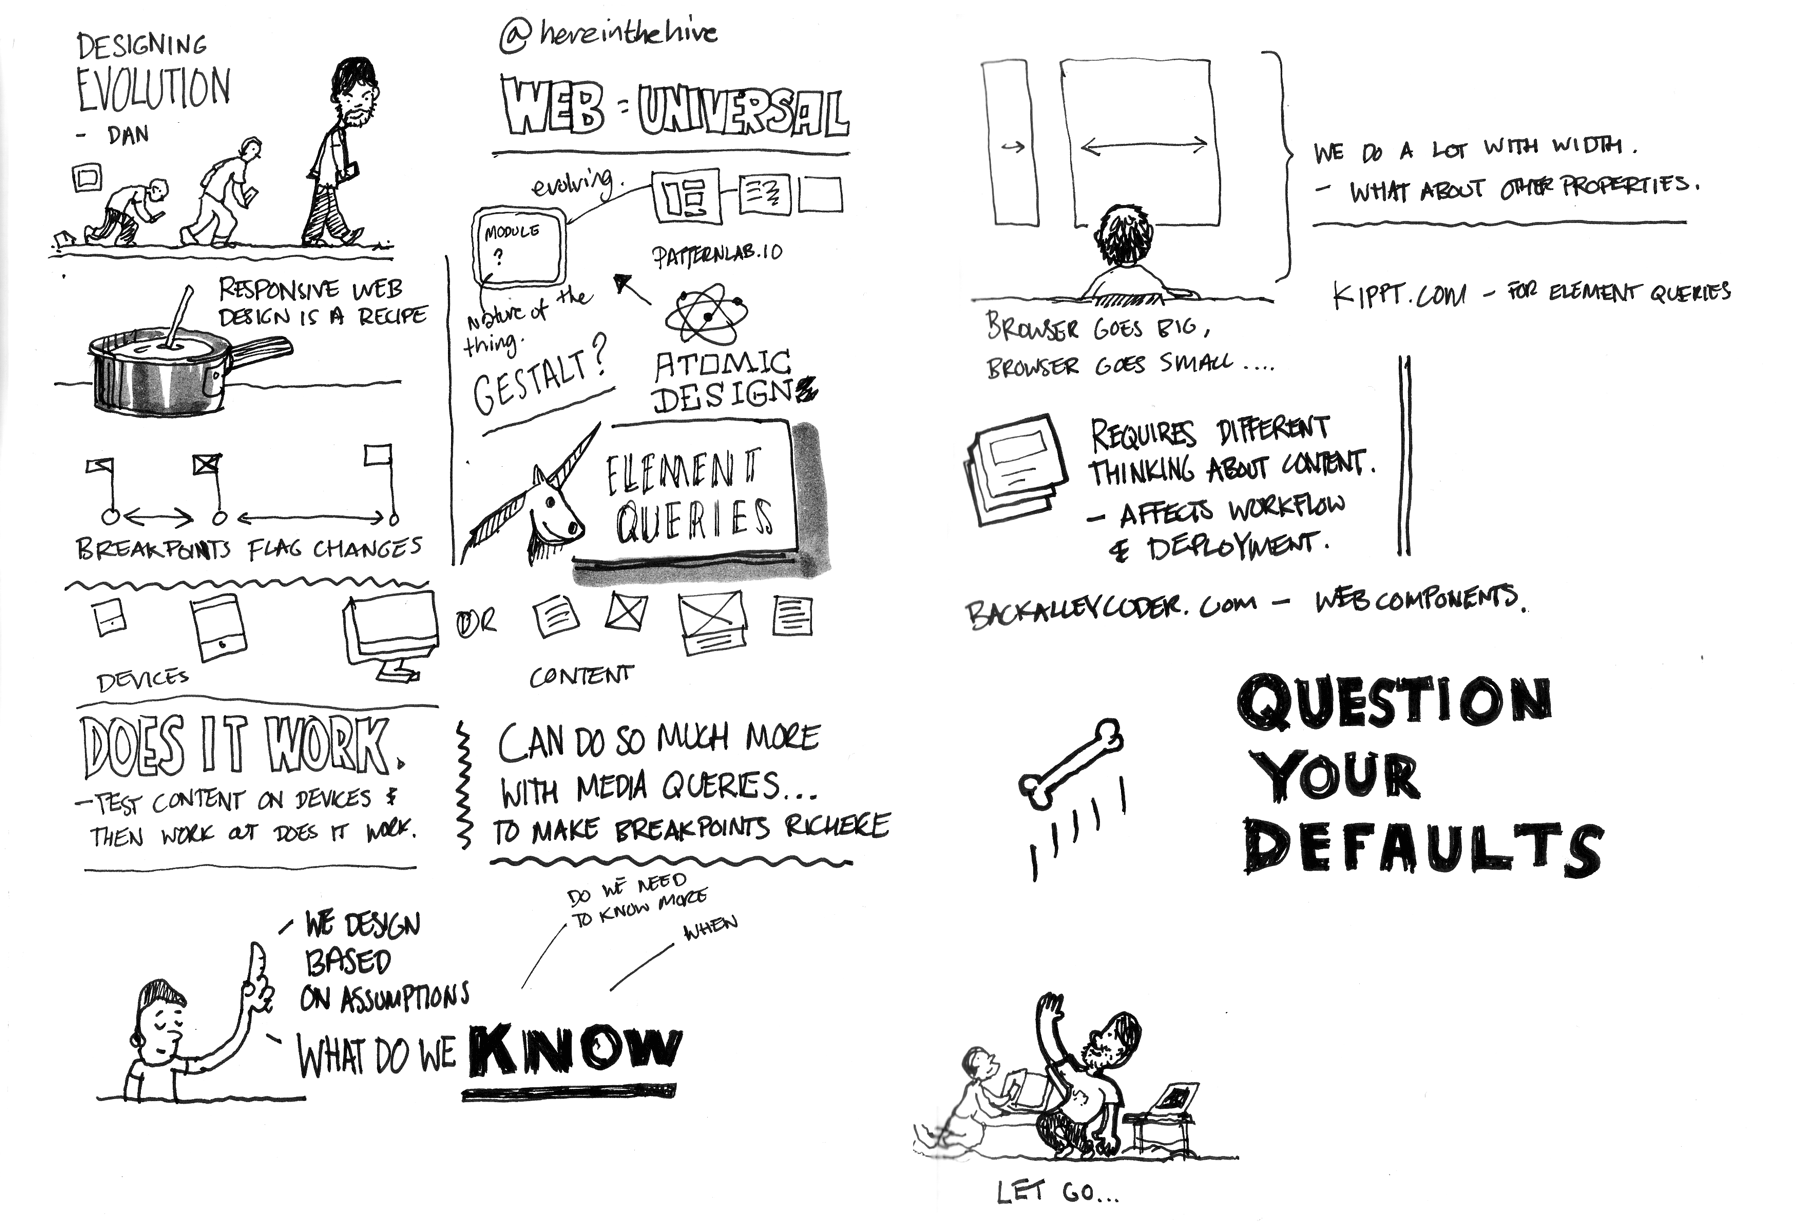 DESIGNING
EVOLUTION
- DAN
RESPONSIVE WEB
DESIGN IS A RECIPE
BREAKPOINTS FLAG CHANGES
DEVICES
OR
CONTENT
DOES IT WORK.
- TEST CONTENT ON DEVICES &
THEN WORK OUT DOES IT WORK.
- WE DESIGN
BASED
ON ASSUMPTIONS
- WHAT DO WE KNOW
@hereinthehive
WEB = UNIVERSAL
evolving.
MODULE
?
PATTERNLAB.IO
nature of the
thing.
GESTALT?
ATOMIC
DESIGN
ELEMENT
QUERIES
CAN DO SO MUCH MORE
WITH MEDIA QUERIES...
TO MAKE BREAKPOINTS RICHERE
DO WE NEED
TO KNOW MORE
WHEN
WE DO A LOT WITH WIDTH.
- WHAT ABOUT OTHER PROPERTIES.
KIPPT.COM - FOR ELEMENT QUERIES
BROWSER GOES BIG,
BROWSER GOES SMALL....
REQUIRES DIFFERENT
THINKING ABOUT CONTENT.
- AFFECTS WORKFLOW
& DEPLOYMENT.
BACKALLEYCODER.COM - WEBCOMPONENTS.
QUESTION
YOUR
DEFAULTS
LET GO...